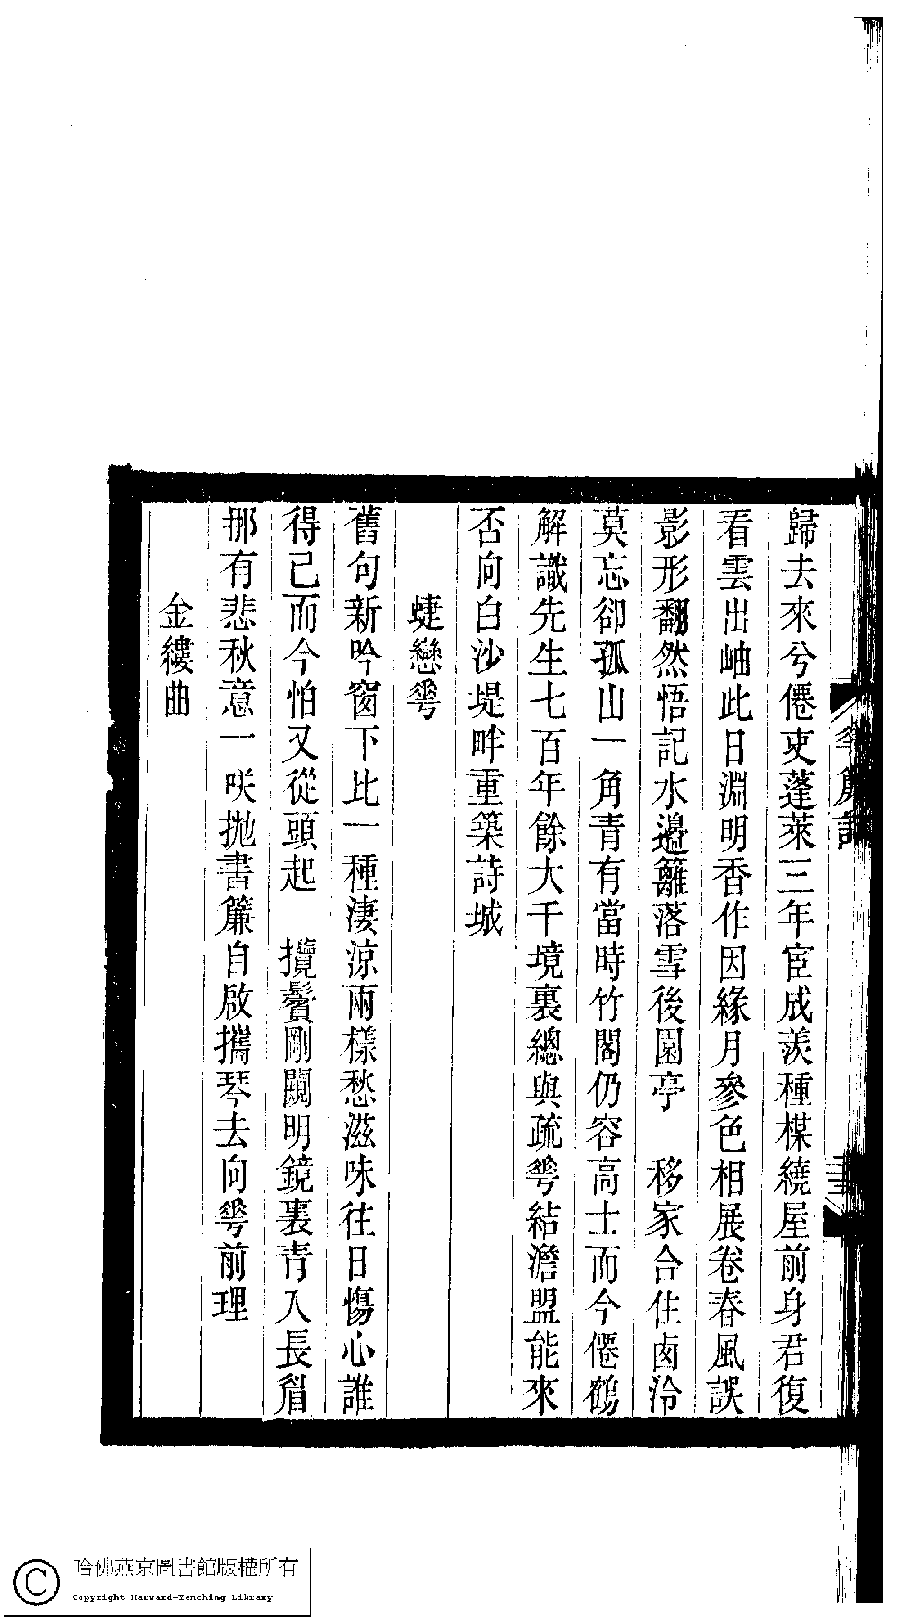 歸去來兮僊吏蓬萊三年宦成羨種楳繞屋前身君復
看雲出岫此日淵明香作因緣月參色相展卷春風誤
影形翻然悟記水邊籬落雪後園亭　移家合住鹵泠
莫忘卻孤山一角青有當時竹閣仍容高士而今僊鶴
解識先生七百年餘大千境裏總與疏蕐結澹盟能來
否向白沙堤畔重築詩城
蜨戀蕐
舊句新吟窗下比一種淒涼兩樣愁滋味往日傷心誰
得已而今怕又從頭起　攬鬢剛闚明鏡裏青入長眉
那有悲秋意一咲拋書簾自啟攜琴去向蕐前理
金縷曲
哈佛燕京圖書館版權所有
Copyright Harvard-Yenching Library